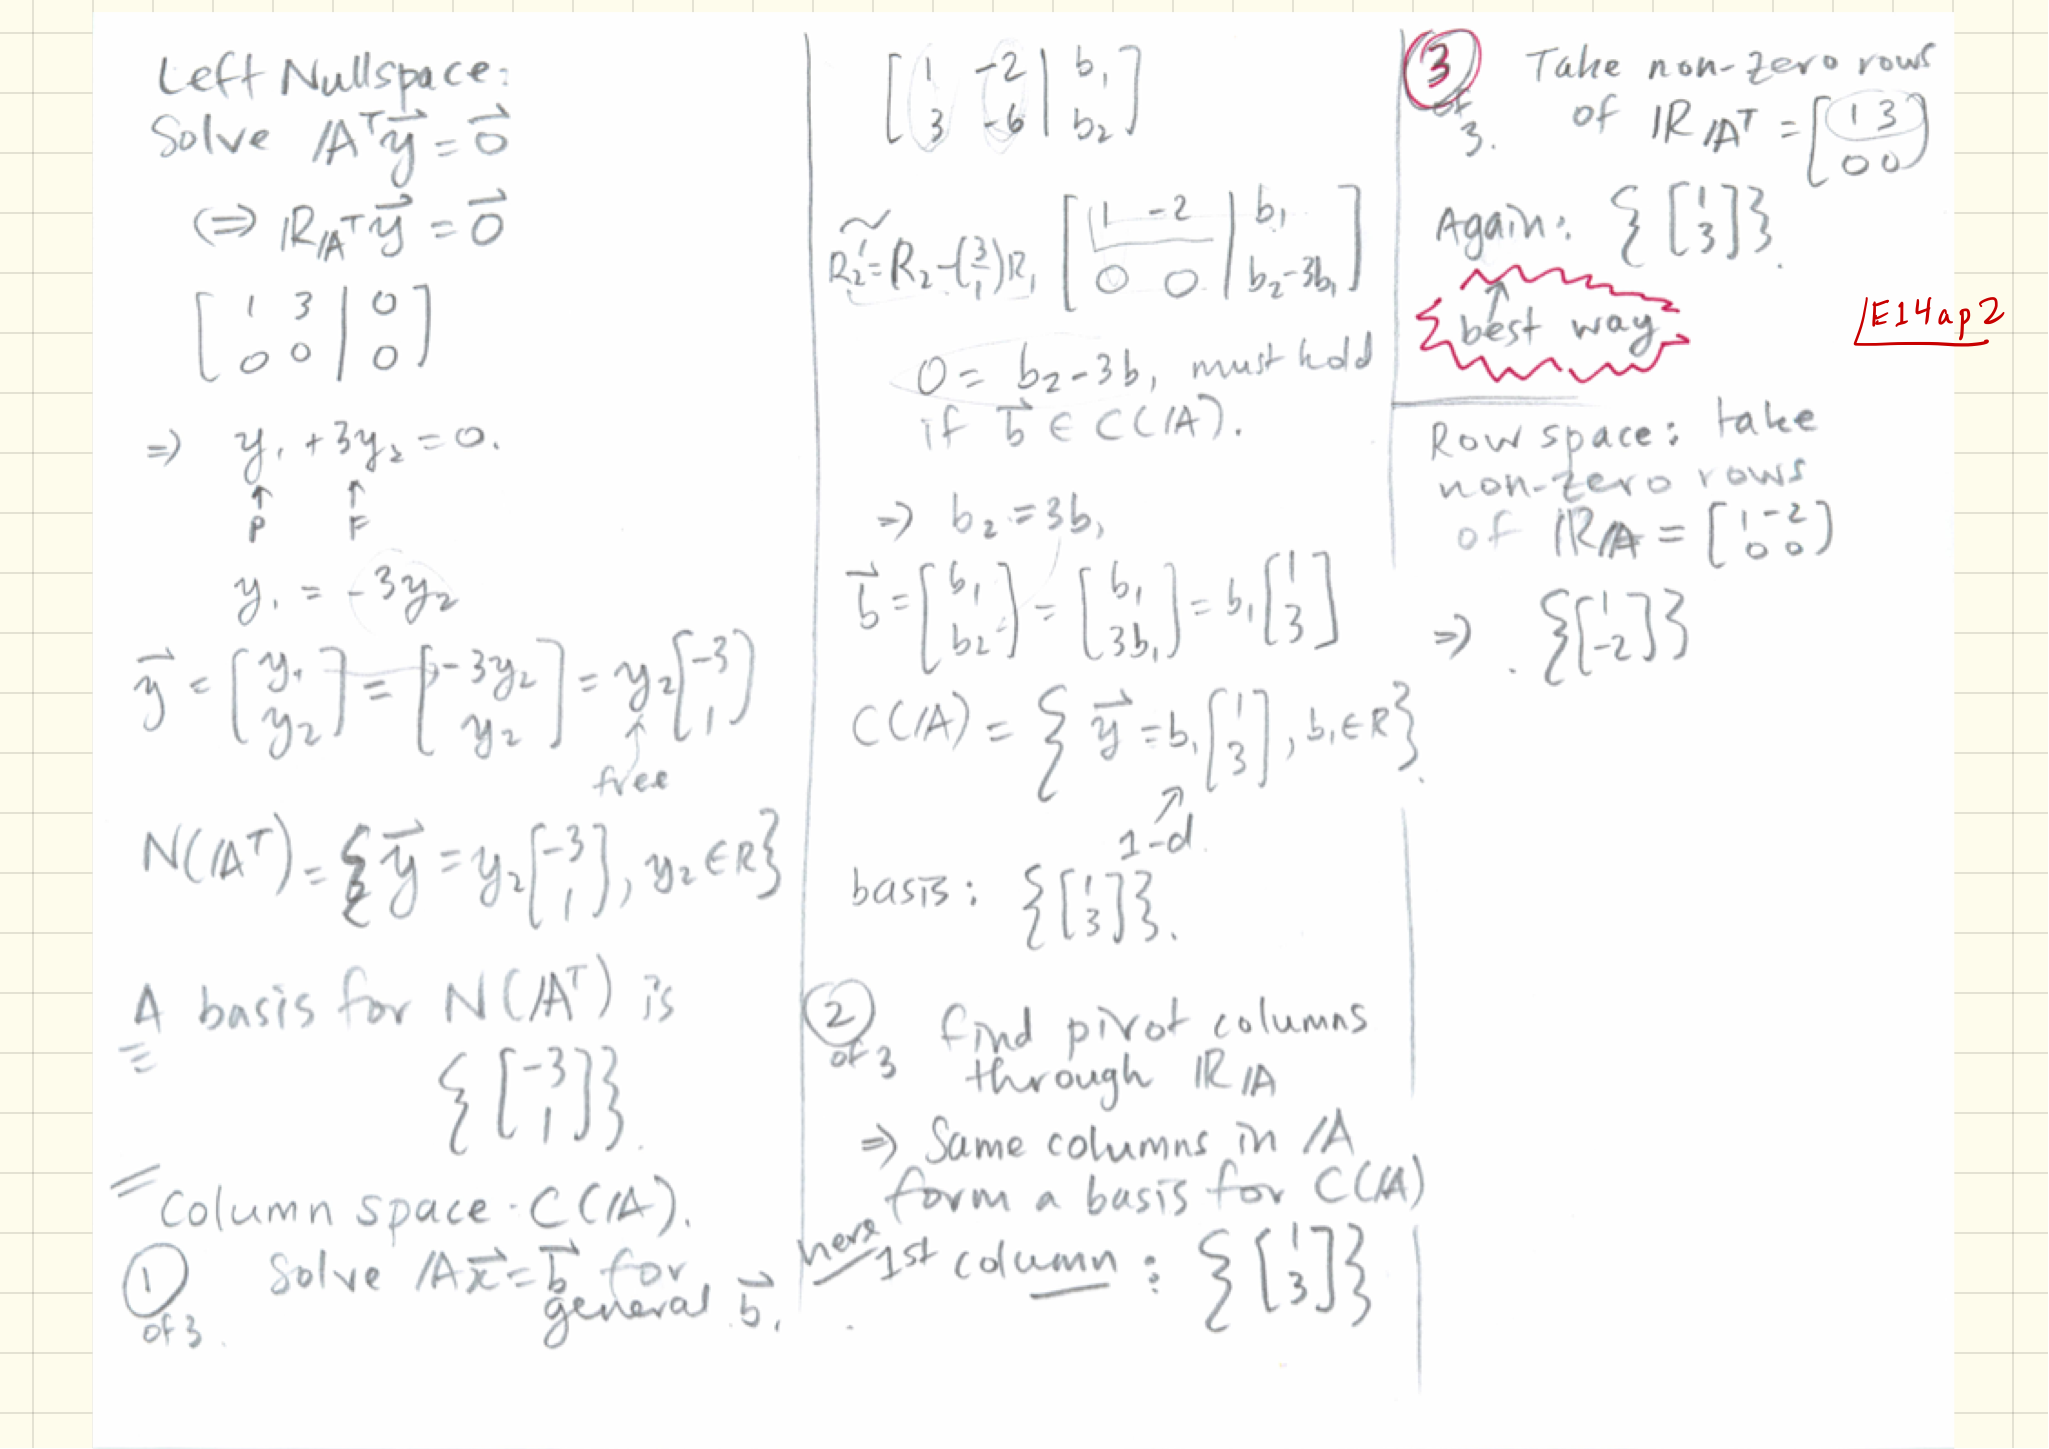 Left Nullspace:
Solve /Aᵀy⃗ = 0⃗
(=) |R/Aᵀ y⃗ = 0⃗
[ 1 3 | 0
0 0 | 0 ]
=) y₁ + 3y₂ = 0.
↑ ↑
P F
y₁ = -3y₂
y⃗ = [ y₁ y₂ ] = [ -3y₂ y₂ ] = y₂ [ -3 1 ]
↑
free
N(/Aᵀ) = { y⃗ = y₂ [ -3 1 ], y₂ ∈ R }
A basis for N(/Aᵀ) is
{ [ -3 1 ] }.
Column space · C(/A).
① Solve /Ax⃗ = b⃗ for
of 3. general b⃗.
[ 1 -2 | b₁
3 -6 | b₂ ]
~
R₂' = R₂ - (3/1)R₁ [ 1 -2 | b₁
0 0 | b₂-3b₁ ]
0 = b₂ - 3b₁ must hold
if b⃗ ∈ C(/A).
=) b₂ = 3b₁
b⃗ = [ b₁ b₂ ] = [ b₁ 3b₁ ] = b₁ [ 1 3 ]
C(/A) = { y⃗ = b₁ [ 1 3 ], b₁ ∈ R }.
↗
1-d.
basis: { [ 1 3 ] }.
② find pivot columns
of 3 through |R/A
=) Same columns in /A
form a basis for C(/A)
here
1st column : { [ 1 3 ] }
③ Take non-zero rows
of 3. of |R/Aᵀ = [ 1 3
0 0 ]
Again: { [ 1 3 ] }.
↑
best way
/E14ap2
Row space: take
non-zero rows
of |R/A = [ 1 -2
0 0 ]
=) . { [ 1 -2 ] }